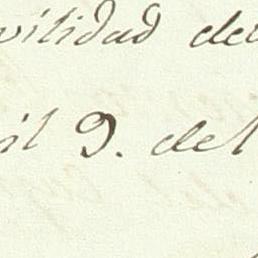 vilidad del
il 9. del